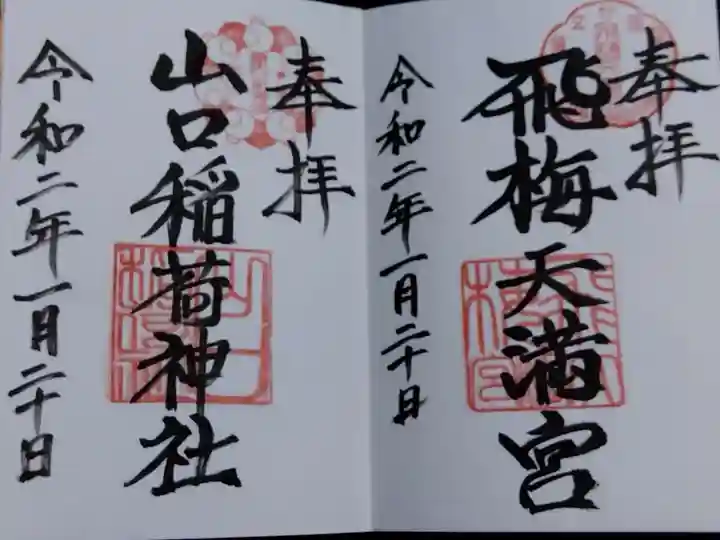 奉拝
飛梅天満宮
令和二年一月二十日
奉拝
山口稲荷神社
令和二年一月二十日